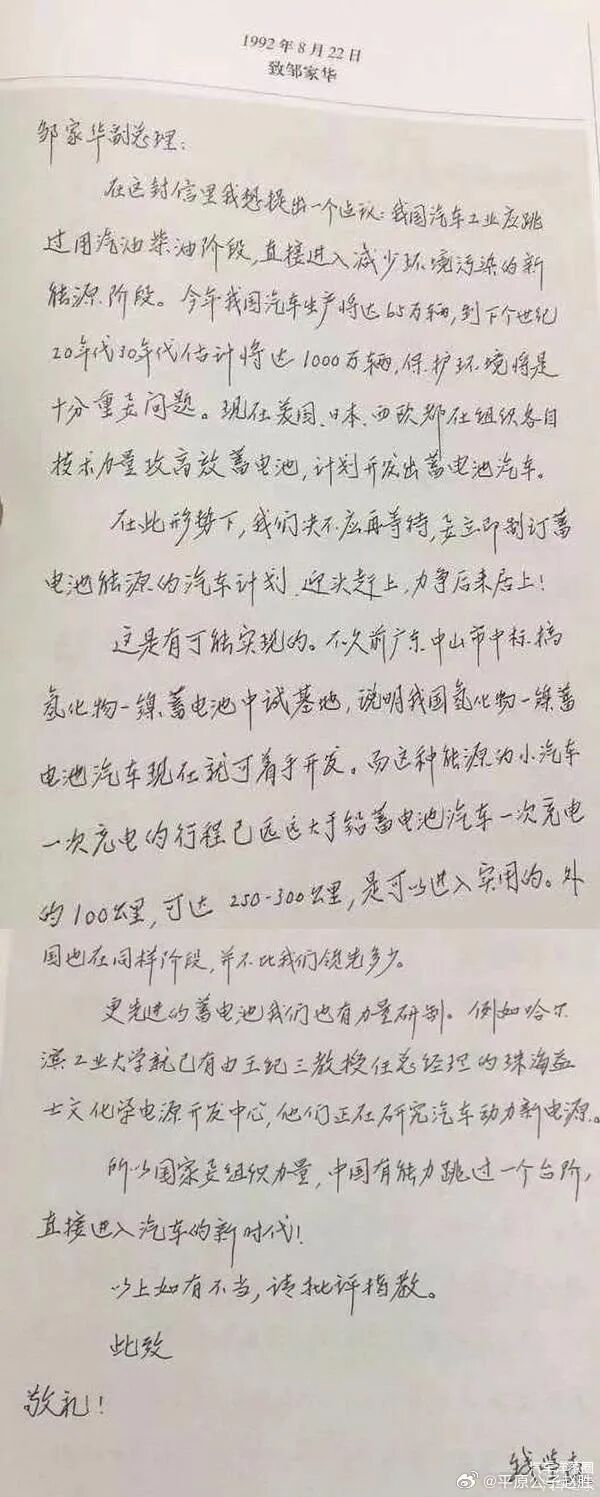 1992年8月22日
致邹家华
邹家华副总理：
在这封信里我想提出一个建议：我国汽车工业应跳
过用汽油柴油阶段，直接进入减少环境污染的新
能源阶段。今年我国汽车生产将达65万辆，到下个世纪
20年代30年代估计将达1000万辆，保护环境将是
十分重要问题。现在美国、日本、西欧都在组织各自
技术力量攻高效蓄电池，计划开发出蓄电池汽车。
在此形势下，我们决不应再等待，要立即制订蓄
电池能源的汽车计划，迎头赶上，力争后来居上！
这是有可能实现的。不久前广东中山市中标搞
氢化物一镍蓄电池中试基地，说明我国氢化物一镍蓄
电池汽车现在就可着手开发。而这种能源的小汽车
一次充电的行程已远远大于铅蓄电池汽车一次充电
的100公里，可达250-300公里，是可以进入实用的。外
国也在同样阶段，并不比我们领先多少。
更先进的蓄电池我们也有力量研制。例如哈尔
滨工业大学就已有由王纪三教授任总经理的珠海益
士文化学电源开发中心，他们正在研究汽车动力新电源。
所以国家要组织力量，中国有能力跳过一个台阶，
直接进入汽车的新时代！
以上如有不当，请批评指教。
此致
敬礼！
钱学森
@平原公子赵胜